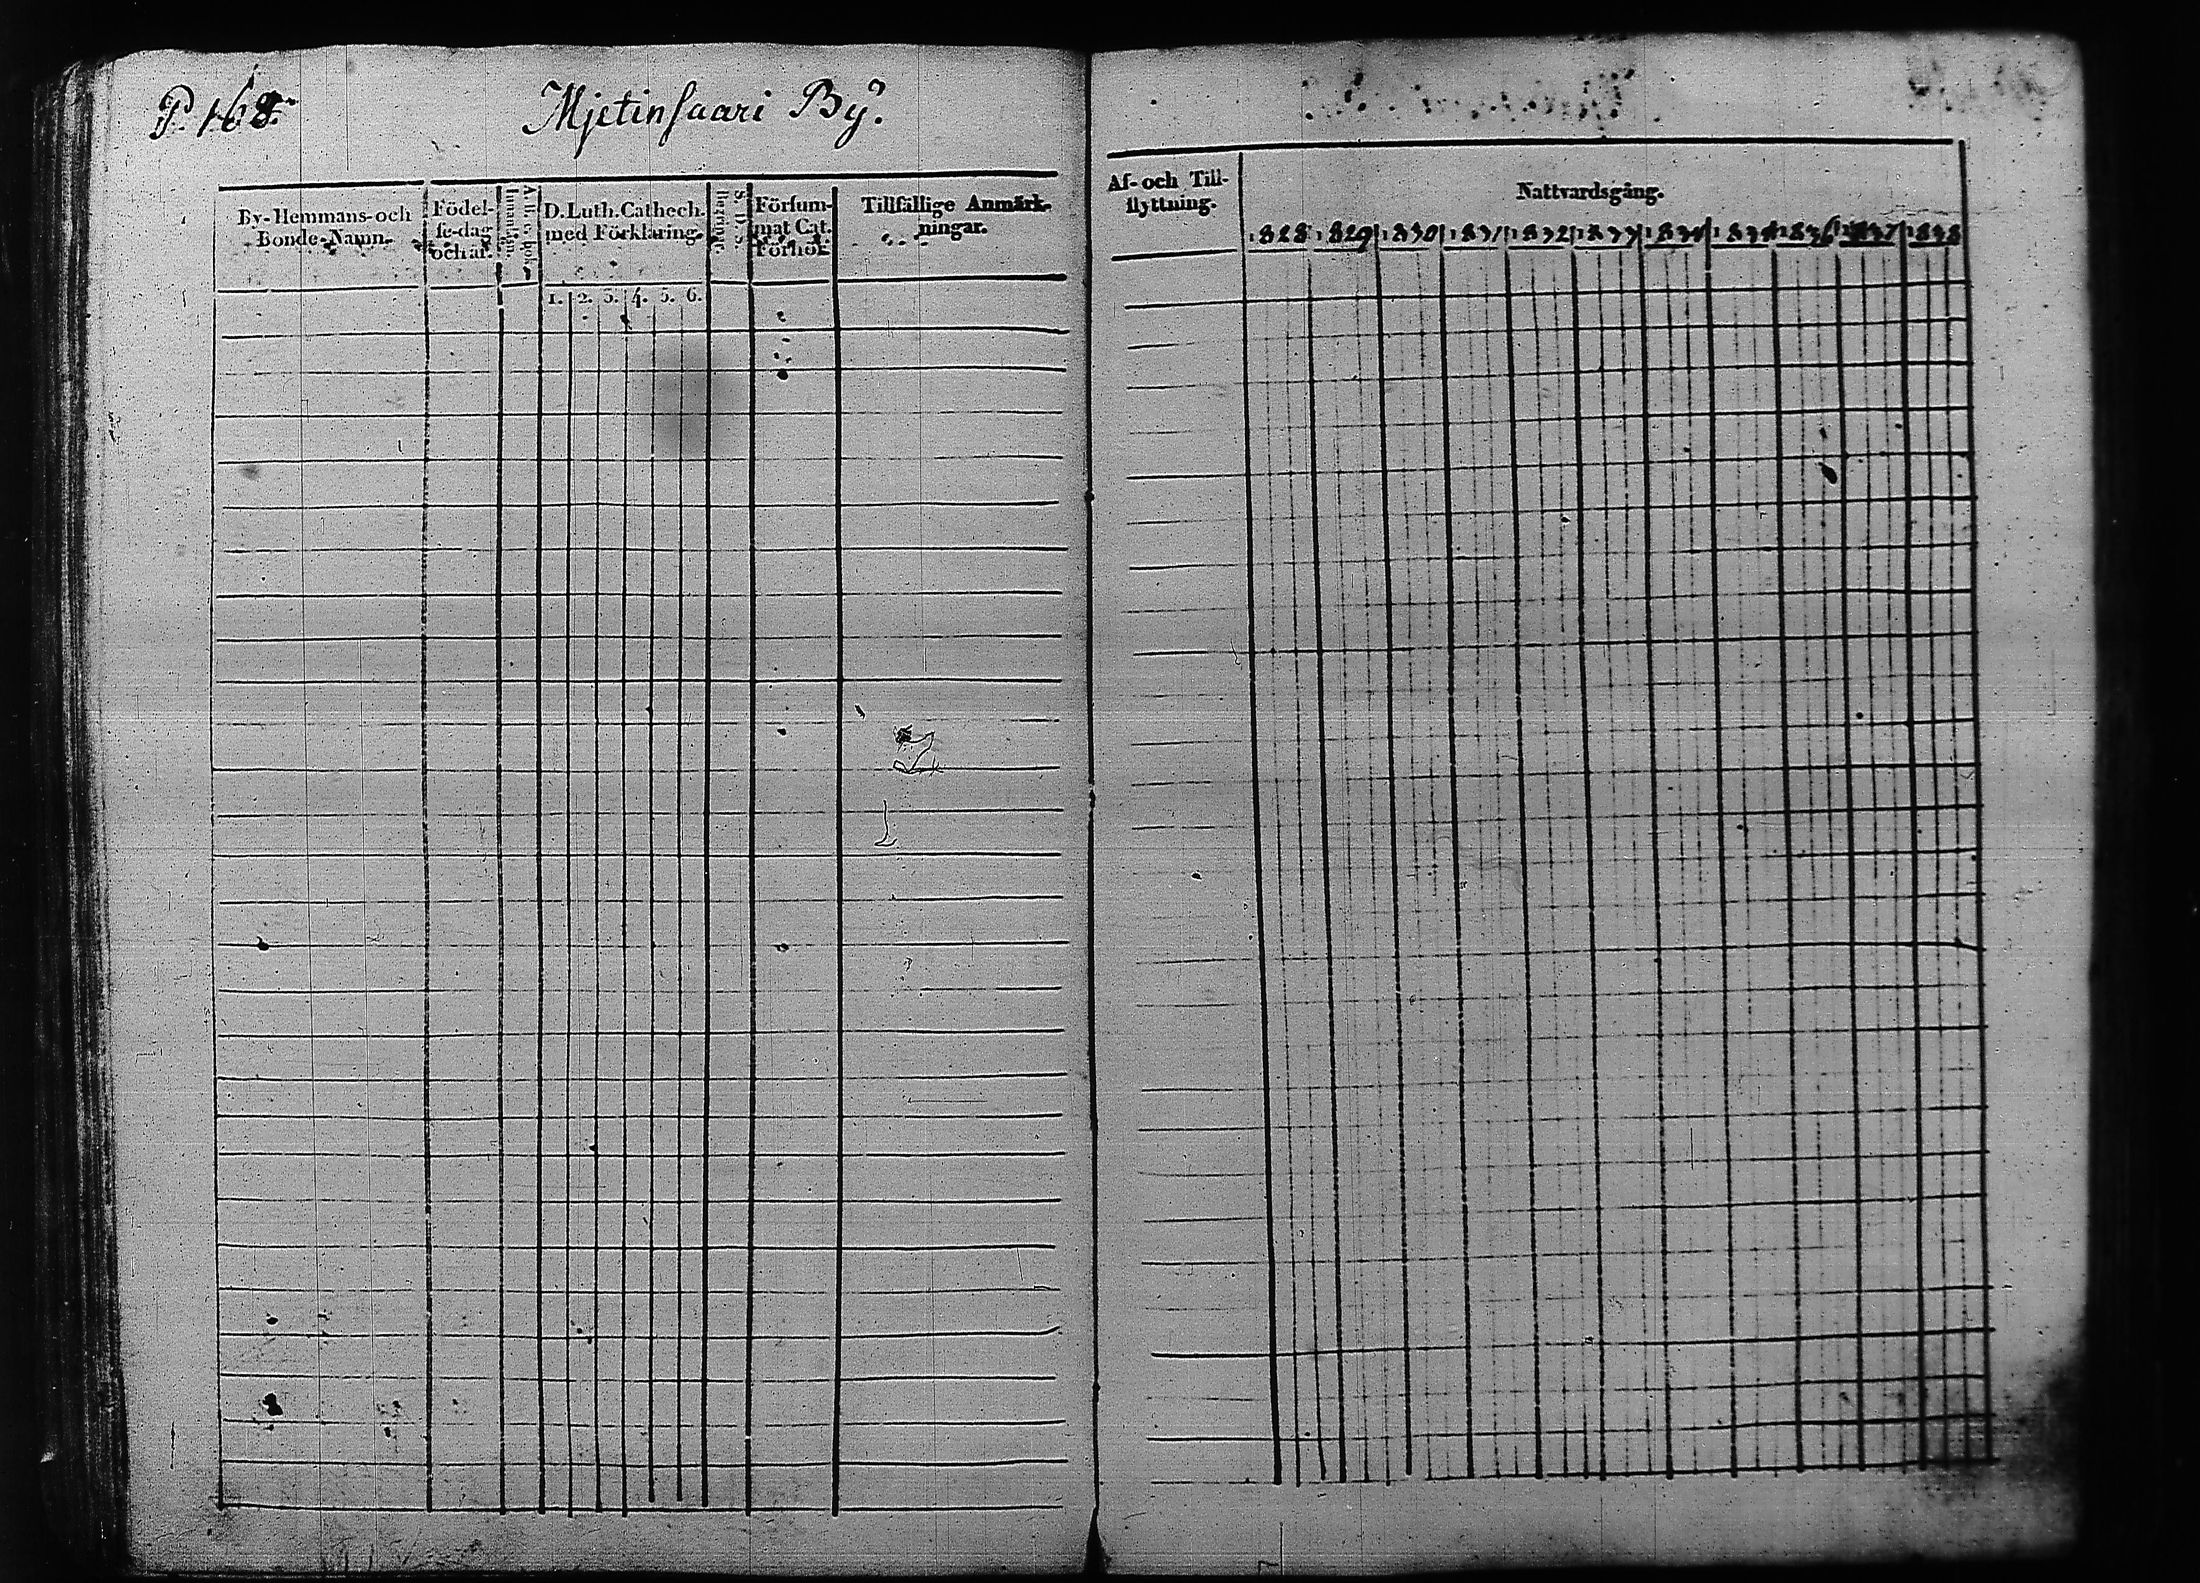 P. 168.
Mjetinsaari By.
By- Hemmans- och
Bonde-Namn.
Födel-
se-dag
och år.
D. Luth. Cathech.
med Förklaring.
1. 2. 3. 4. 5. 6.
Försum-
mat Cat.
Förhör
Tillfällige Anmärk-
ningar.
Af- och Till-
flyttning.
Nattvardsgång.
1828 1829 1830 1831 1832 1833 1834 1835 1836 1837 1838